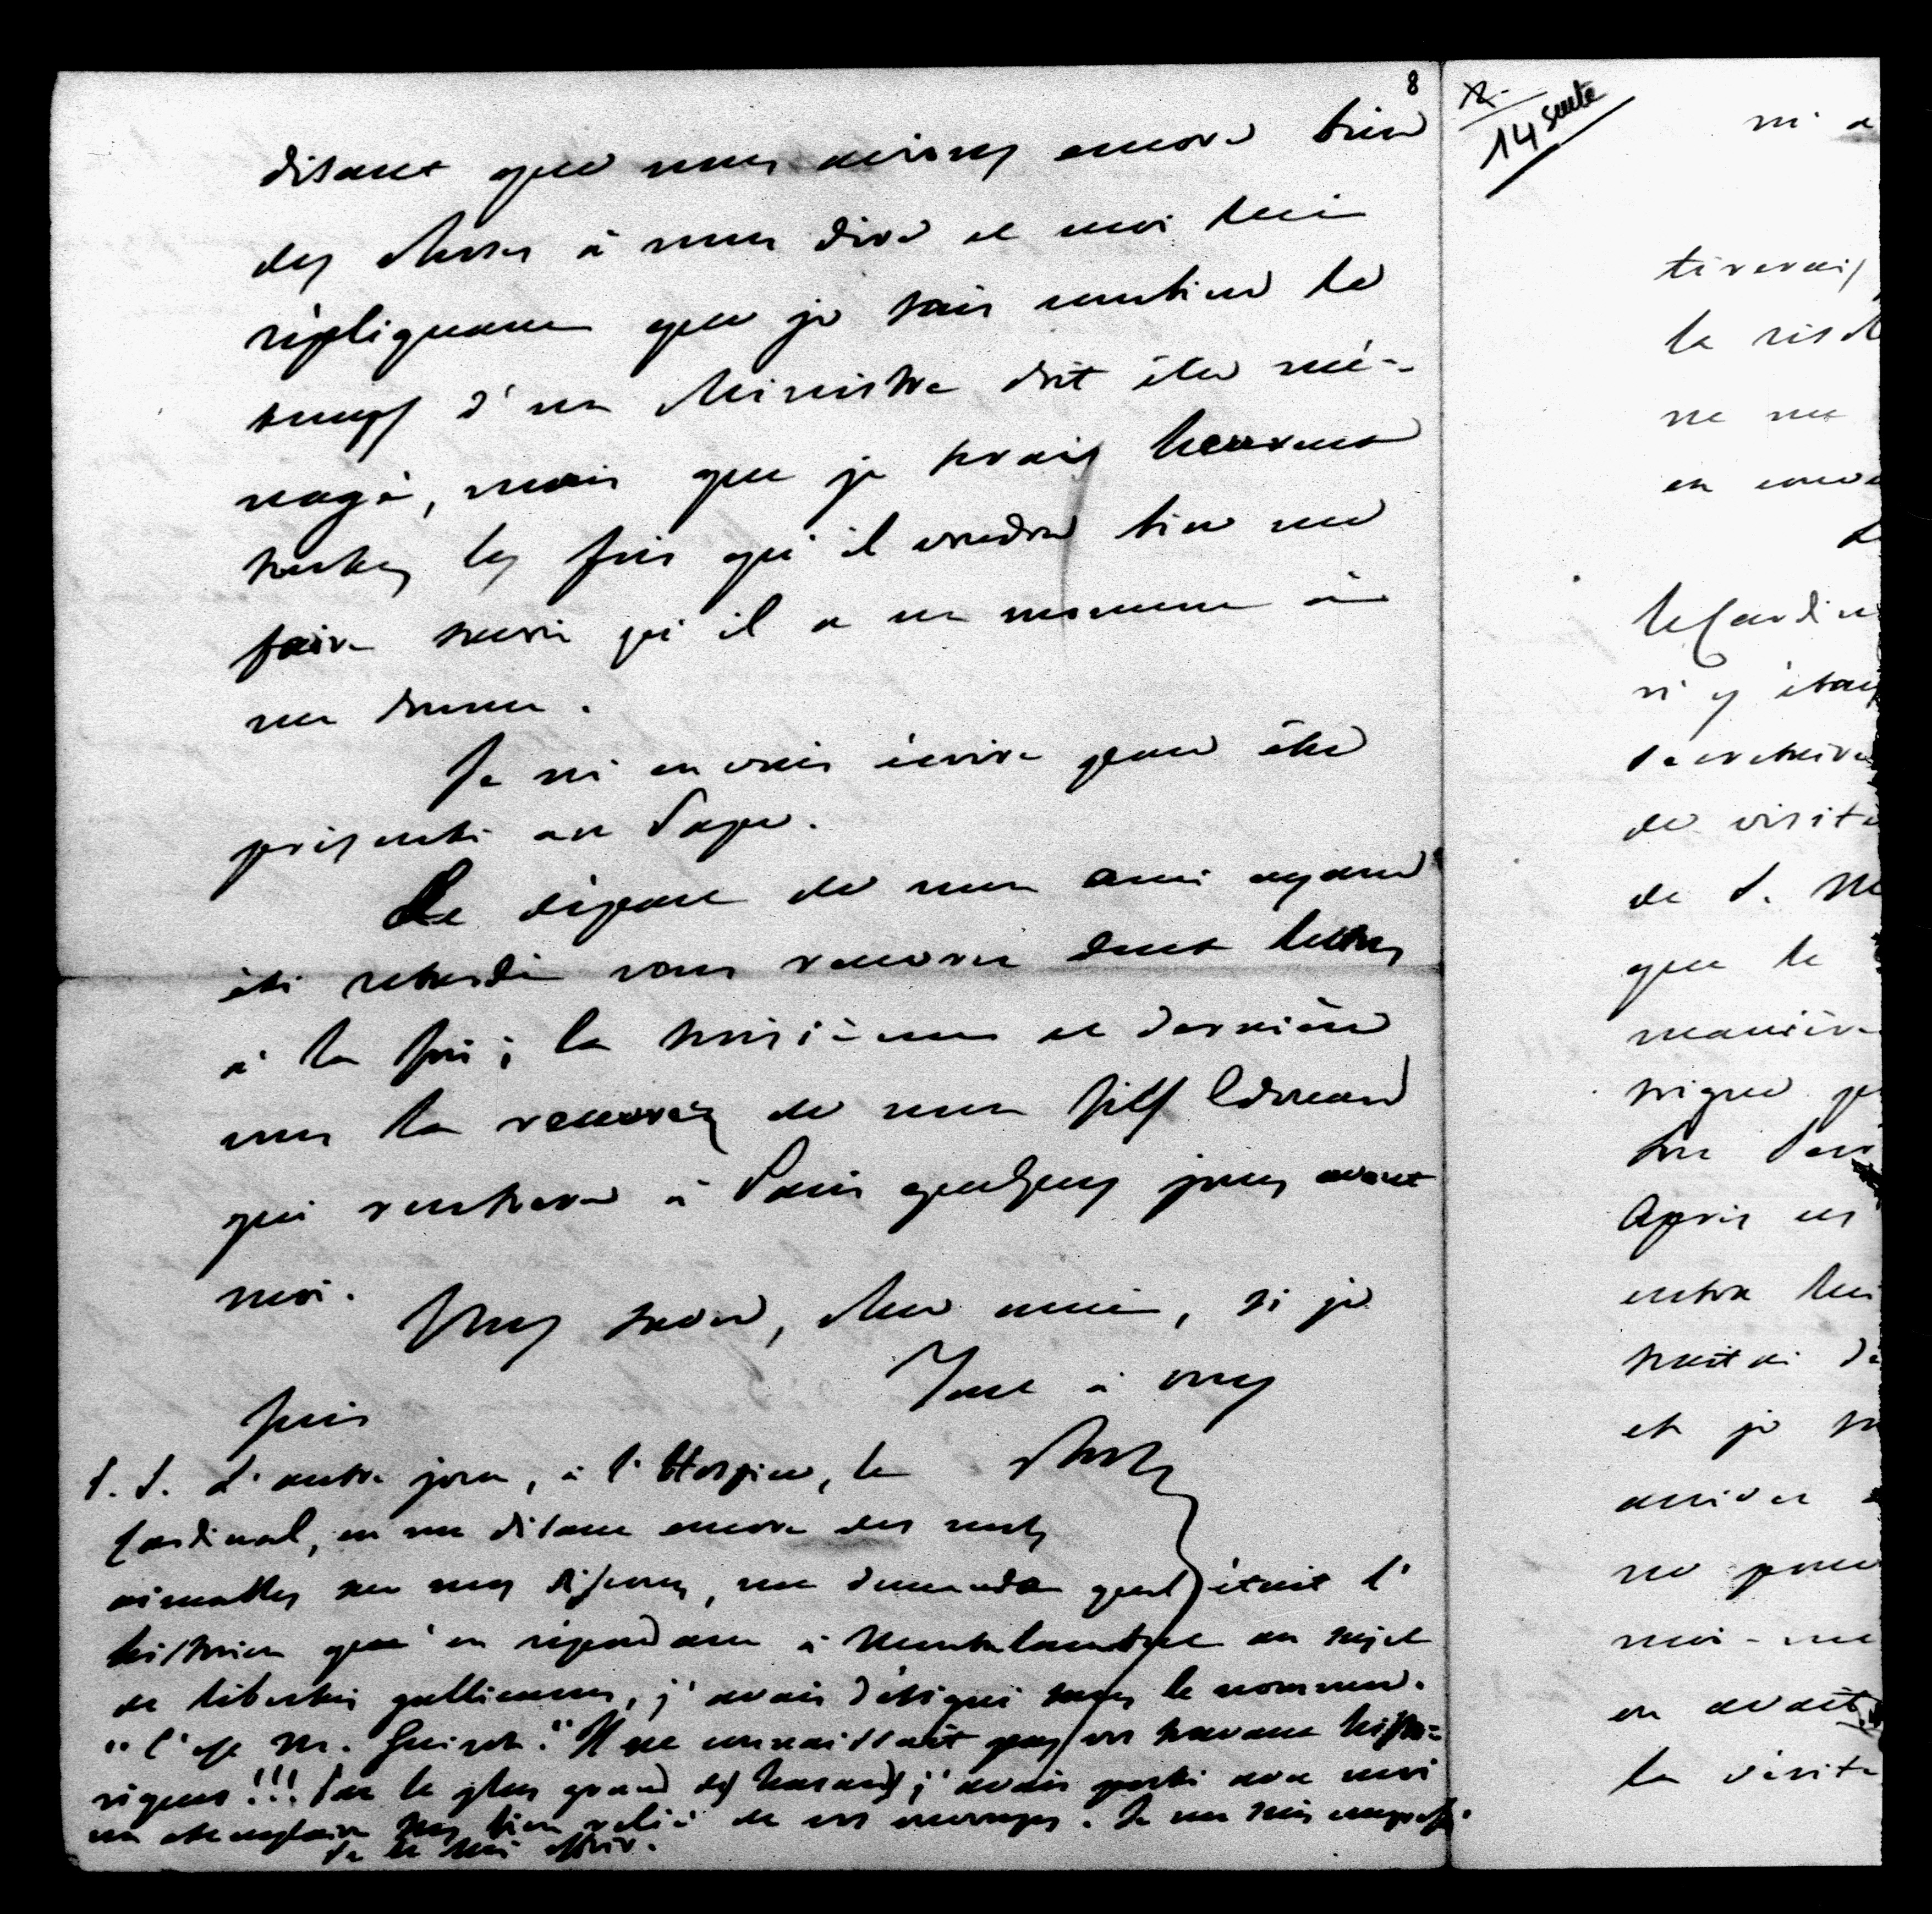 8
disant que nous avions encore bien
des choses à nous dire et moi lui
répliquant que je sais combien le
temps d'un Ministre doit être mé-
nagé, mais que je serais heureux
toutes les fois qu'il voudra bien me
faire savoir qu'il a un moment à
me donner.
Je m'en vais écrire pour être
présenté au Pape.
Le départ de mon ami ayant
été retardé vous recevrez deux lettres
à la fois ; la troisième et dernière
vous la recevrez de mon fils Edmond
qui rentrera à Paris quelques jours avant
moi.
Vous savez, cher ami, si je
suis
Tout à vous
P. S. L'autre jour, à l'Hospice, le
Cardinal, en me disant encore des mots
aimables sur mes discours, me demanda quel était l'
historien qu'en répondant à Montalembert au sujet
de libertés gallicanes, j'avais désigné sans le nommer.
"C'est Mr. Guizot." Il ne connaissait pas vos travaux histo-
riques!!! Par le plus grand des hasards j'avais porté avec moi
un exemplaire très bien relié de vos ouvrages. Je me suis empressé
de le lui offrir.
12
14 suite
m'a
tirerais
la
ne me
en
le Cardin
m'y étai
de visite
de S. M
que le
manière
Après
entra lui
et je
arriver
ne
moi-mê
en avait
la visite